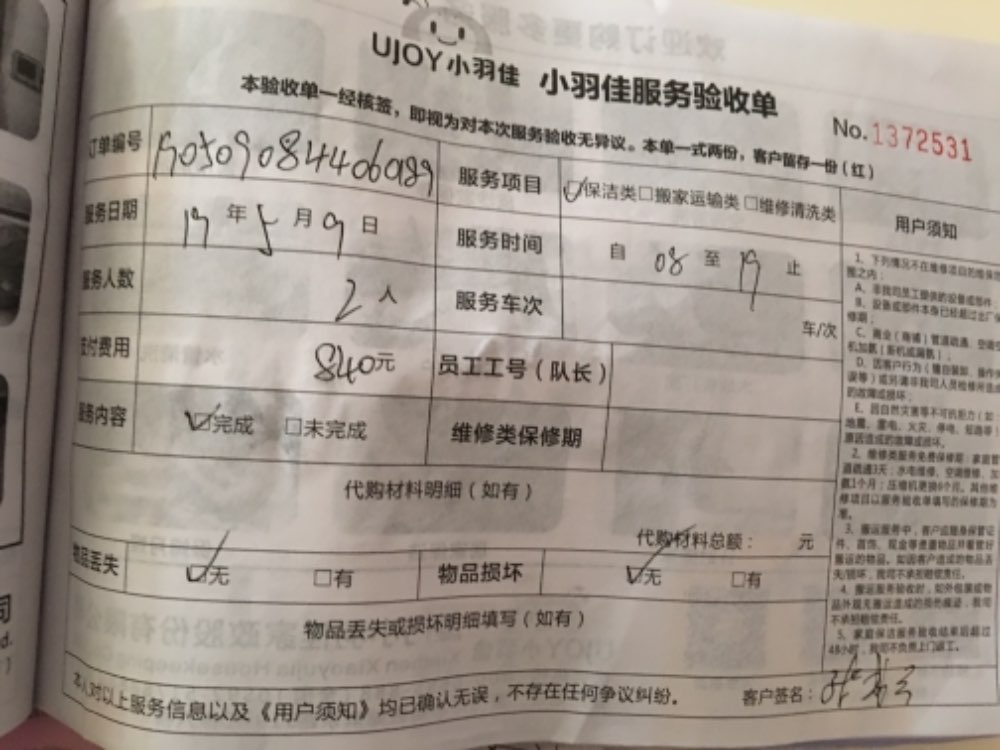 UJOY小羽佳 小羽佳服务验收单
本验收单一经核签，即视为对本次服务验收无异议。本单一式两份，客户留存一份（红）
No.1372531
订单编号
服务项目 保洁类 搬家运输类 维修清洗类
用户须知
服务日期 19年5月9日
服务时间 自 08 至 19 止
服务人数 2人
服务车次 车/次
支付费用 840元
员工工号（队长）
服务内容 完成 未完成
维修类保修期
代购材料明细（如有）
代购材料总额： 元
物品丢失 无 有
物品损坏 无 有
物品丢失或损坏明细填写（如有）
本人对以上服务信息以及《用户须知》均已确认无误，不存在任何争议纠纷。
客户签名：
1、下列情况不在维修项目的维保范
围之内：
A、非我司员工提供的设备或部件
B、设备或部件本身已经超过出厂保
修期；
的故障或损坏；
E、因自然灾害等不可抗拒力（如：
地震、雷电、火灾、停电、短路等）
原因造成的故障或损坏。
2、维修类服务免费保修期：家庭管
道疏通3天；水电维修、空调维修、加
氨1个月；压缩机更换6个月。其他维
修项目以服务验收单填写的保修期为
准。
3、搬运服务中，客户应随身保管证
件、首饰、现金等贵重物品并看管好
搬运的物品。如因客户造成的物品丢
失/损坏，我司不承担赔偿责任。
4、搬运服务验收时，如外包装或物
品外观无搬运造成的损伤痕迹，我司
不承担赔偿责任。
5、家庭保洁服务验收结束后超过
48小时，我司不负责上门返工。